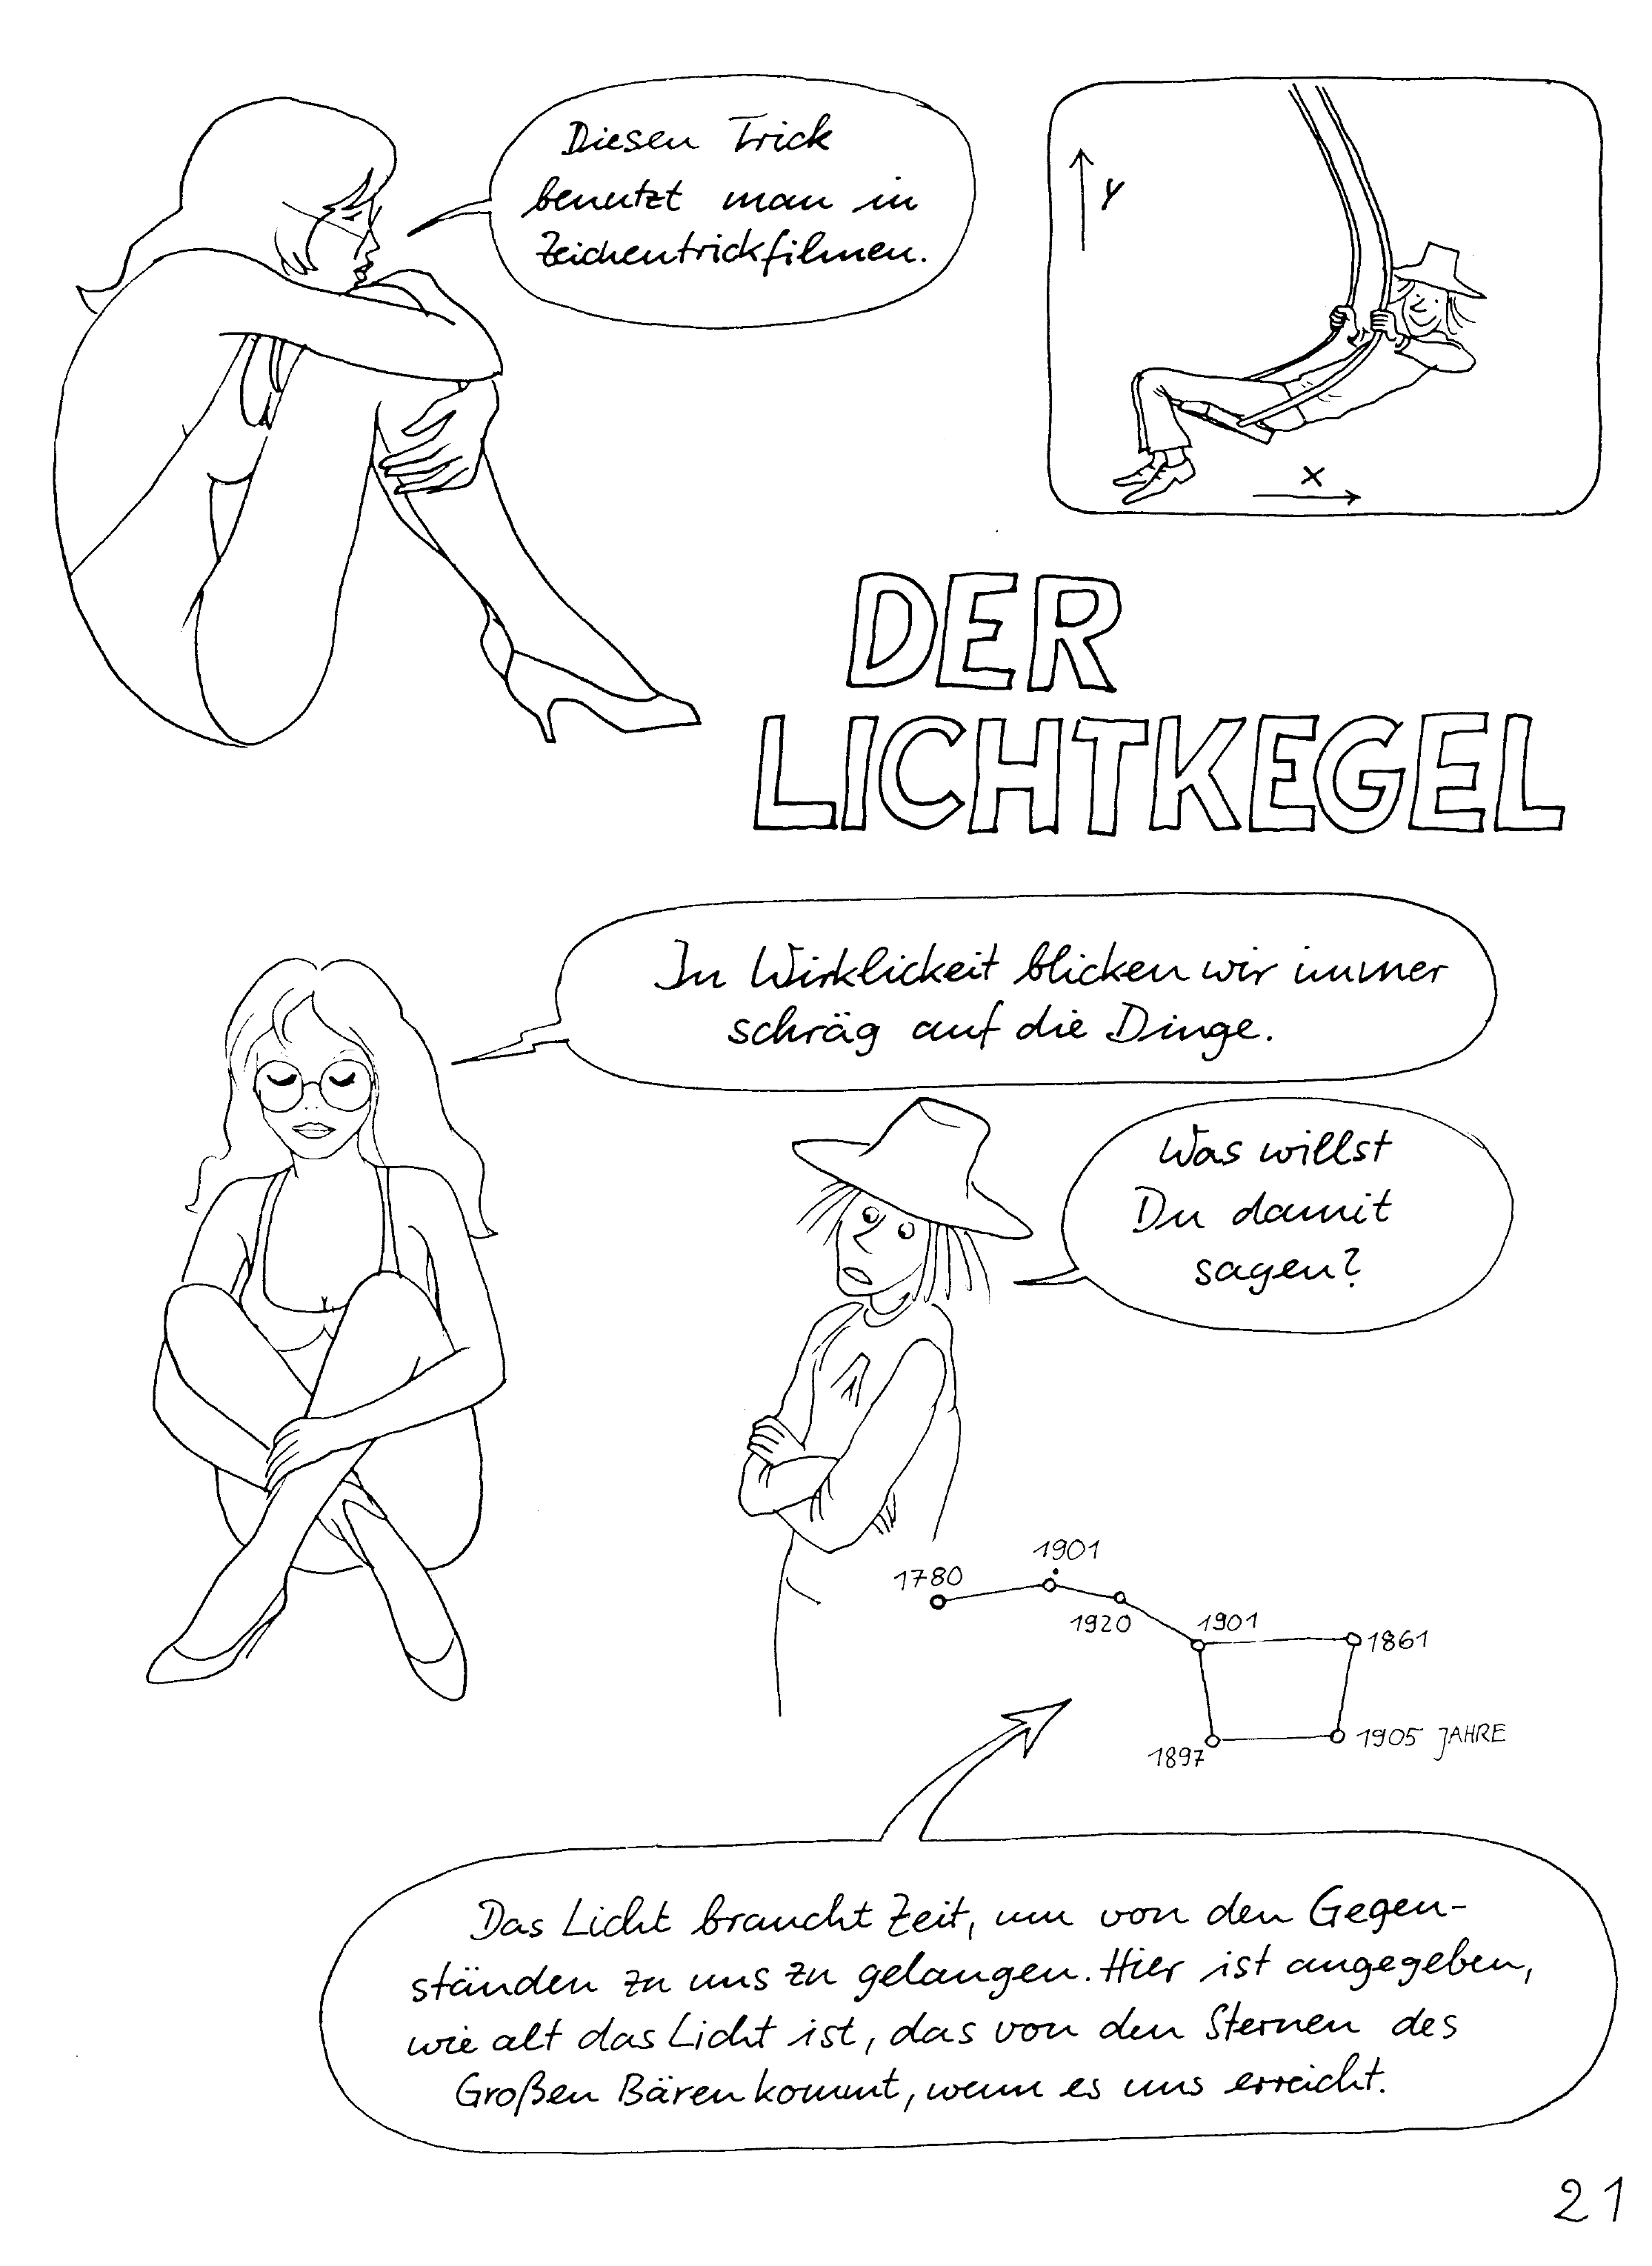 Diesen Trick
benutzt man in
Zeichentrickfilmen.
Y
X
DER
LICHTKEGEL
In Wirklickeit blicken wir immer
schräg auf die Dinge.
Was willst
Du damit
sagen?
1901
1780
1920
1901
1861
1905 JAHRE
1897
Das Licht braucht Zeit, um von den Gegen-
ständen zu uns zu gelangen. Hier ist angegeben,
wie alt das Licht ist, das von den Sternen des
Großen Bären kommt, wenn es uns erreicht.
21